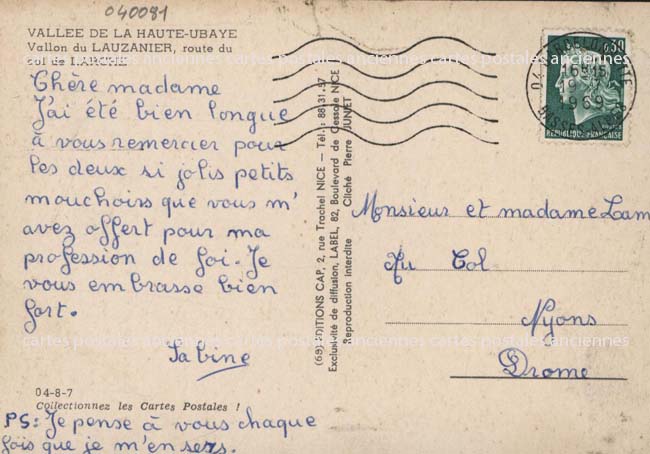 040081
VALLEE DE LA HAUTE-UBAYE
Vallon du LAUZANIER, route du
col de LARCHE
Chère madame
J'ai été bien longue
à vous remercier pour
les deux si jolis petits
mouchoirs que vous m'
avez offert pour ma
profession de foi. Je
vous embrasse bien
fort.
Sabine
04-8-7
Collectionnez les Cartes Postales !
PS: Je pense à vous chaque
fois que je m'en sers.
(69) EDITIONS CAP, 2, rue Trachel NICE — Tél.: 88-31-97
Exclusivité de diffusion, LABEL, 82, Boulevard de Cessole NICE
Reproduction interdite Cliché Pierre JUNIET
0,30
REPUBLIQUE FRANÇAISE
04
16H15
1969
BASSES ALPES
Monsieur et madame Lam
Au Col
Nyons
Drome
cartes postales anciennes cartes postales anciennes cartes postales anciennes
cartes postales anciennes cartes postales anciennes cartes postales anciennes